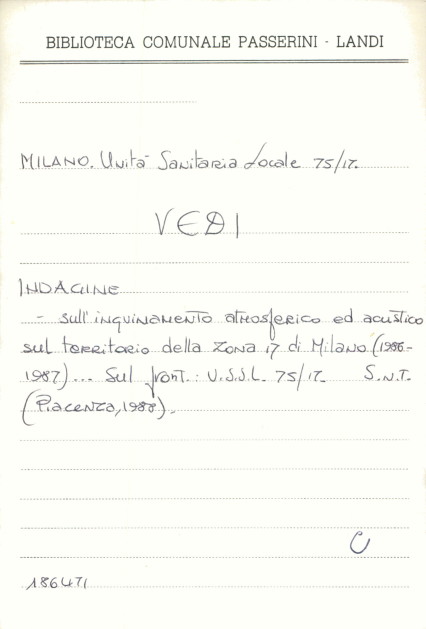 BIBLIOTECA COMUNALE PASSERINI - LANDI
MILANO. Unità Sanitaria Locale 75/17.
VEDI
INDAGINE
- sull'inquinamento atmosferico ed acustico
sul territorio della Zona 17 di Milano (1986-
1987)... Sul front.: U.S.S.L. 75/17. S.n.t.
(Piacenza, 1988).
C
186471